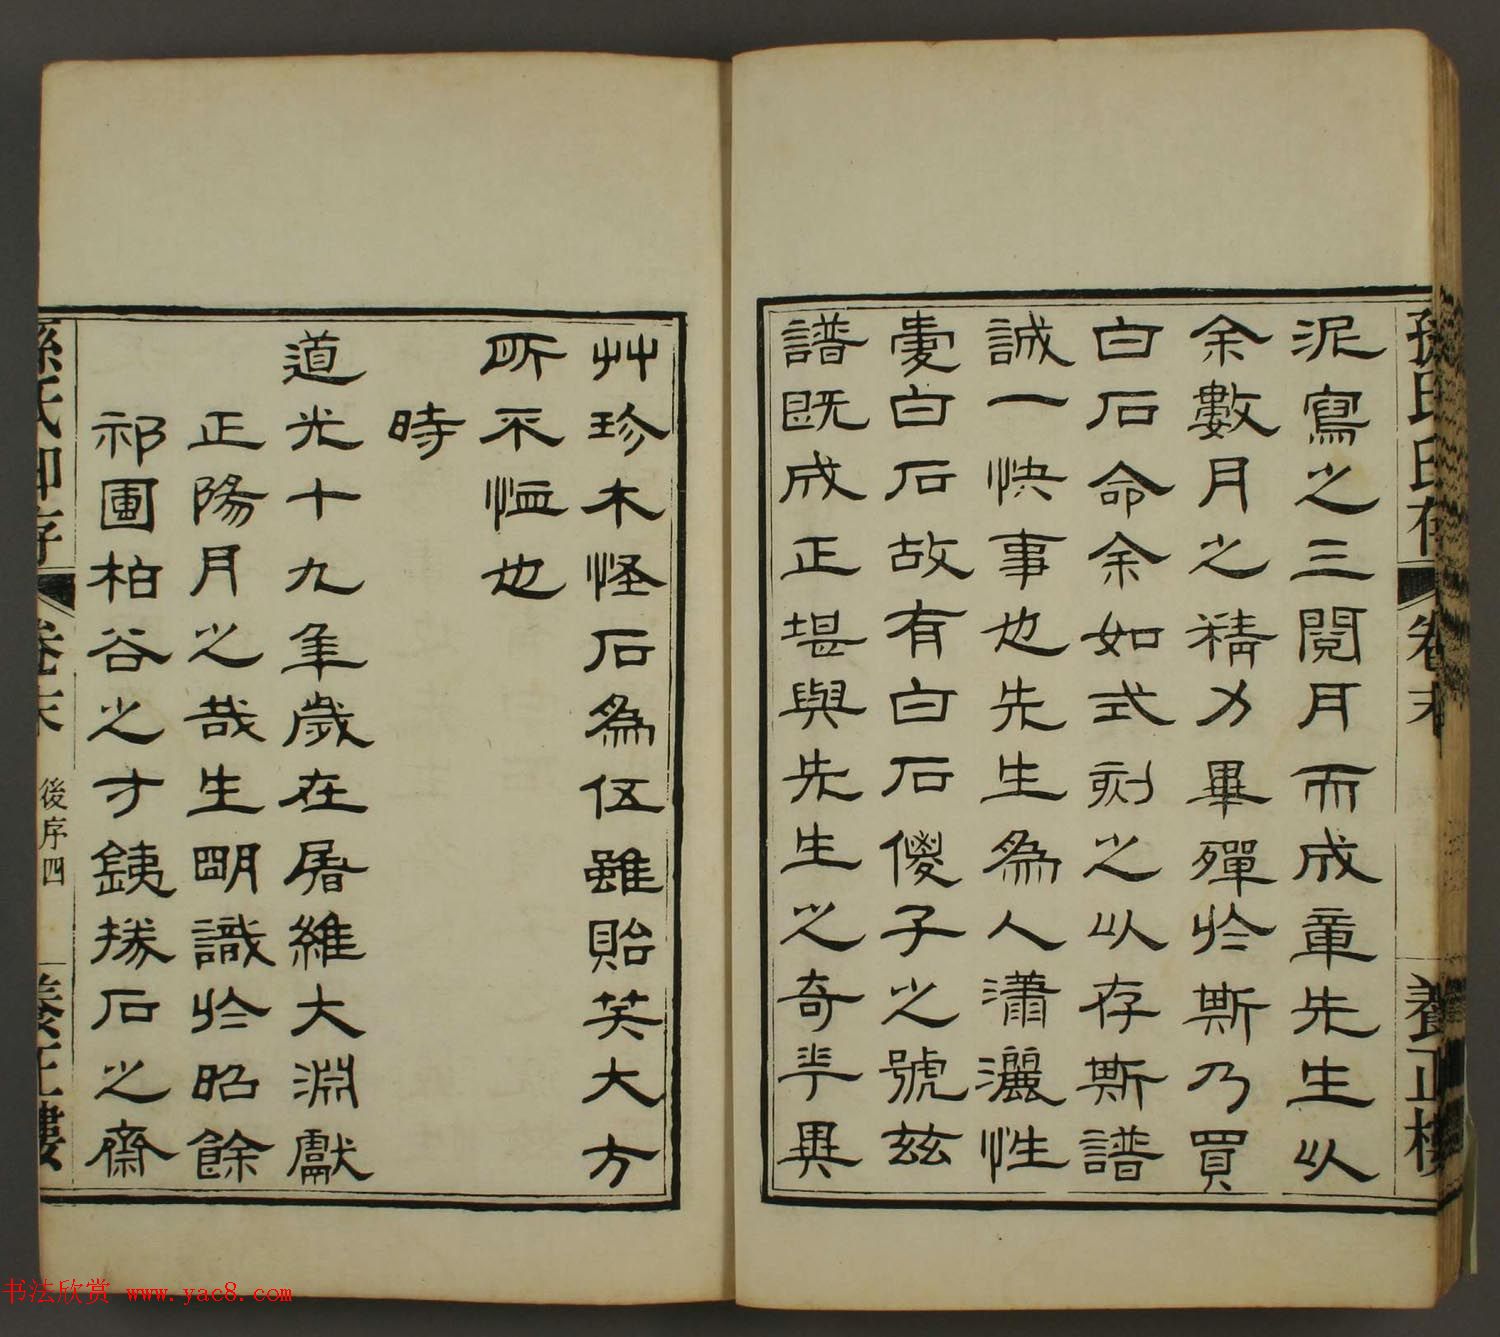 泥寫之三閱月而成章先生以
余數月之精力畢殫於斯乃買
白石命余如式刻之以存斯譜
誠一快事也先生爲人瀟灑性
耽白石故有白石儍子之號茲
譜既成正堪與先生之奇卉異
艸珍木怪石爲伍雖貽笑大方
所不恤也
時
道光十九年歲在屠維大淵獻
正陽月之哉生明識於昭餘
祁圃柏谷之才銕㧞石之齋
孫氏印存 卷末 後序四 養正樓
孫氏印存 卷末 養正樓
书法欣赏 www.yac8.com